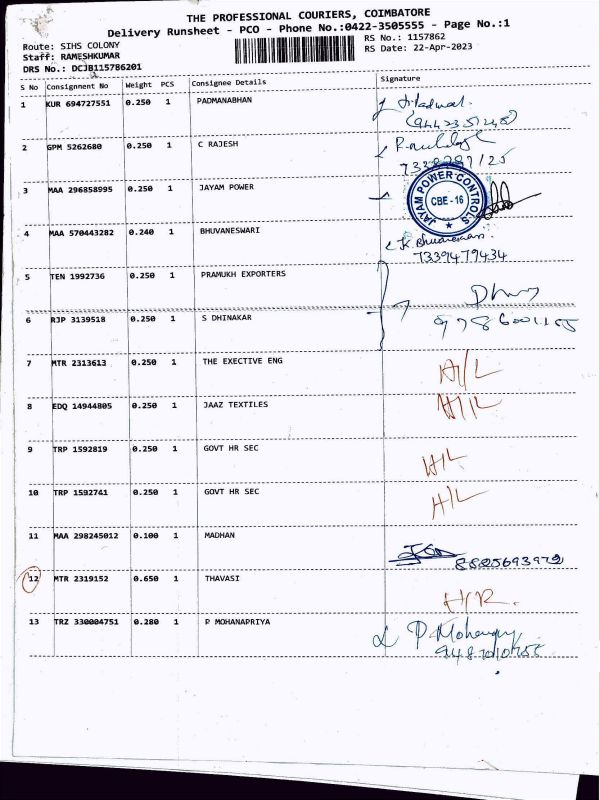 THE PROFESSIONAL COURIERS, COIMBATORE
Delivery Runsheet - PCO - Phone No.:0422-3505555 - Page No.:1
Route: SIHS COLONY
RS No.: 1157862
Staff: RAMESHKUMAR
RS Date: 22-Apr-2023
DRS No.: DCJB115786201
S No Consignment No Weight PCS Consignee Details Signature
1 KUR 694727551 0.250 1 PADMANABHAN
2 GPM 5262680 0.250 1 C RAJESH
3 MAA 296858995 0.250 1 JAYAM POWER
JAYAM POWER CONTROLS
CBE - 16
4 MAA 570443282 0.240 1 BHUVANESWARI
7339479434
5 TEN 1992736 0.250 1 PRAMUKH EXPORTERS
6 RJP 3139518 0.250 1 S DHINAKAR
7 MTR 2313613 0.250 1 THE EXECTIVE ENG H/L
8 EDQ 14944805 0.250 1 JAAZ TEXTILES H/L
9 TRP 1592819 0.250 1 GOVT HR SEC H/L
10 TRP 1592741 0.250 1 GOVT HR SEC H/L
11 MAA 298245012 0.100 1 MADHAN
8825693972
12 MTR 2319152 0.650 1 THAVASI
13 TRZ 330004751 0.280 1 P MOHANAPRIYA